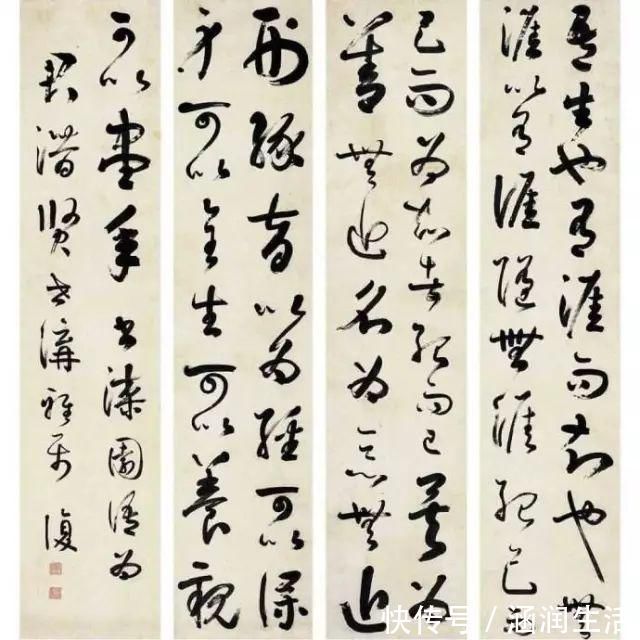 吾生也有涯而知也無
涯以有涯隨無涯殆已
已而為知者殆而已矣為
善無近名為惡無近
刑緣督以為經可以保
身可以全生可以養親
可以盡年 書漆園語為
潛賢世講雅屬 復
快传号 / 涵润生活